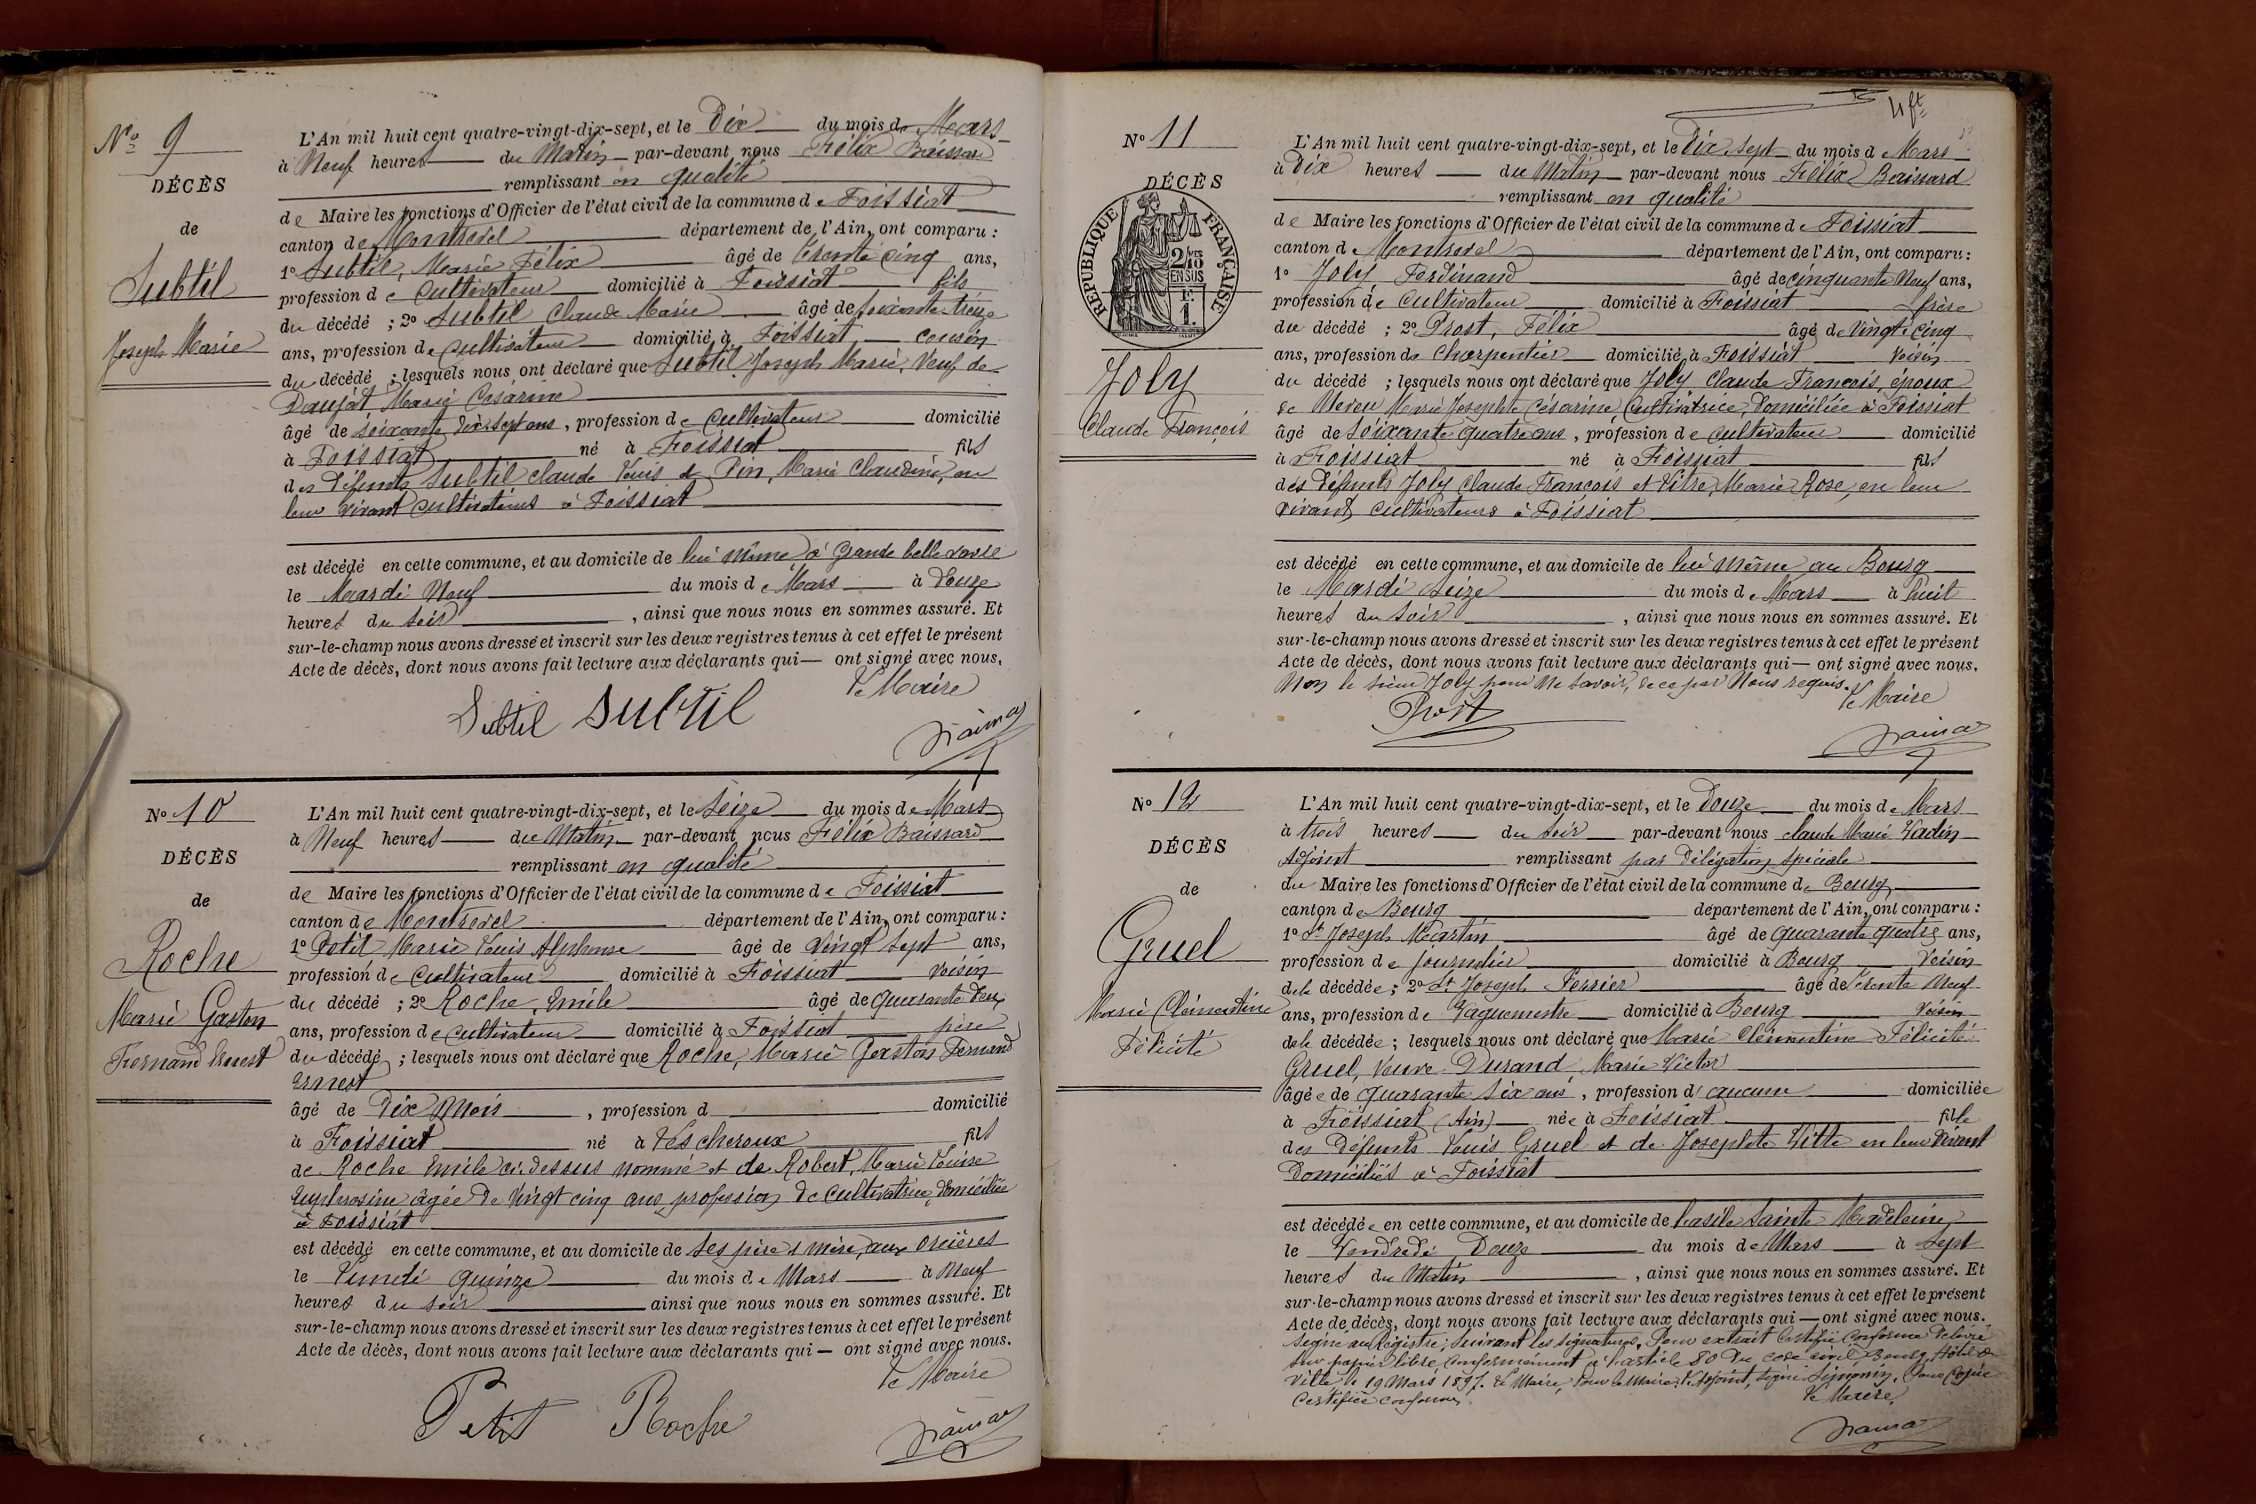 No 9
DÉCÈS
de
Subtil
Joseph Marie
L'An mil huit cent quatre-vingt-dix-sept, et le Dix du mois de Mars
à Neuf heures du Matin par-devant nous Félix Baissard
remplissant en qualité
de Maire les fonctions d'Officier de l'état civil de la commune de Foissiat
canton de Montrevel département de l'Ain, ont comparu :
1o Subtil, Marie Félix âgé de trente cinq ans,
profession de Cultivateur domicilié à Foissiat fils
du décédé ; 2o Subtil Claude Marie âgé de soixante treize
ans, profession de Cultivateur domicilié à Foissiat cousin
du décédé ; lesquels nous ont déclaré que Subtil Joseph Marie, Veuf de
Daujat, Marie Césarine
âgé de soixante dix-sept ans, profession de Cultivateur domicilié
à Foissiat né à Foissiat fils
des Défunts Subtil Claude Louis & Pin, Marie Claudine, en
leur vivant Cultivateurs à Foissiat
est décédé en cette commune, et au domicile de lui même à Grande belle
le Mardi Neuf du mois de Mars à Douze
heures du soir, ainsi que nous nous en sommes assuré. Et
sur-le-champ nous avons dressé et inscrit sur les deux registres tenus à cet effet le présent
Acte de décès, dont nous avons fait lecture aux déclarants qui — ont signé avec nous.
Le Maire
Subtil Subtil
No 10
DÉCÈS
de
Roche
Marie Gaston
Fernand Ernest
L'An mil huit cent quatre-vingt-dix-sept, et le Seize du mois de Mars
à Neuf heures du Matin par-devant nous Félix Baissard
remplissant en qualité
de Maire les fonctions d'Officier de l'état civil de la commune de Foissiat
canton de Montrevel département de l'Ain, ont comparu :
1o Petit Marie Louis Alphonse âgé de Vingt Sept ans,
profession de Cultivateur domicilié à Foissiat Voisin
du décédé ; 2o Roche, Emile âgé de quarante deux
ans, profession de Cultivateur domicilié à Foissiat père
du décédé ; lesquels nous ont déclaré que Roche, Marie Gaston Fernand
Ernest
âgé de Dix Mois, profession d domicilié
à Foissiat né à Lescheroux fils
de Roche Emile ci-dessus nommé et de Robert, Marie Louise
Euphrosine âgée de Vingt cinq ans, profession de Cultivatrice, domiciliée
à Foissiat
est décédé en cette commune, et au domicile de ses père & mère, aux Orcières
le Lundi quinze du mois de Mars à Neuf
heures du soir ainsi que nous nous en sommes assuré. Et
sur-le-champ nous avons dressé et inscrit sur les deux registres tenus à cet effet le présent
Acte de décès, dont nous avons fait lecture aux déclarants qui — ont signé avec nous.
Le Maire
Petit Roche
4 ft
No 11
DÉCÈS
RÉPUBLIQUE FRANÇAISE
2/10 EN SUS
F. 1.
Joly
Claude François
L'An mil huit cent quatre-vingt-dix-sept, et le Dix Sept du mois d Mars
à Dix heures du Matin par-devant nous Félix Baissard
remplissant en qualité
de Maire les fonctions d'Officier de l'état civil de la commune de Foissiat
canton de Montrevel département de l'Ain, ont comparu :
1o Joly Ferdinand âgé de cinquante Neuf ans,
profession de Cultivateur domicilié à Foissiat frère
du décédé ; 2o Prost, Félix âgé de Vingt cinq
ans, profession de Charpentier domicilié à Foissiat Voisin
du décédé ; lesquels nous ont déclaré que Joly Claude François, époux
de Marie Josephte Césarine, Cultivatrice, Domiciliée à Foissiat
âgé de soixante quatre ans, profession de Cultivateur domicilié
à Foissiat né à Foissiat fils
des Défunts Joly Claude François et Vitre, Marie Rose, en leur
vivant Cultivateurs à Foissiat
est décédé en cette commune, et au domicile de lui même au Bourg
le Mardi Seize du mois de Mars à huit
heures du soir, ainsi que nous nous en sommes assuré. Et
sur-le-champ nous avons dressé et inscrit sur les deux registres tenus à cet effet le présent
Acte de décès, dont nous avons fait lecture aux déclarants qui — ont signé avec nous.
Non le sieur Joly pour ne savoir, de ce par Nous requis.
Le Maire
Prost
No 12
DÉCÈS
de
Gruel
Marie Clémentine
Félicité
L'An mil huit cent quatre-vingt-dix-sept, et le Douze du mois de Mars
à trois heures du soir par-devant nous Claude Marie Vadin
Adjoint remplissant par Délégation Spéciale
du Maire les fonctions d'Officier de l'état civil de la commune de Bourg
canton de Bourg département de l'Ain, ont comparu :
1o St Joseph Martin âgé de quarante quatre ans,
profession de journalier domicilié à Bourg Voisin
de la décédée ; 2o St Joseph Perrier âgé de trente Neuf
ans, profession de Vaguemestre domicilié à Bourg Voisin
de la décédée ; lesquels nous ont déclaré que Marie Clémentine Félicité
Gruel, Veuve Durand, Marie Victor
âgée de quarante Six ans, profession d'aucune domiciliée
à Foissiat (Ain) née à Foissiat fille
des Défunts Louis Gruel et de Josephte Vitte en leur Vivant
Domiciliés à Foissiat
est décédée en cette commune, et au domicile de l'asile Sainte Madeleine
le Vendredi Douze du mois de Mars à Sept
heures du Matin, ainsi que nous nous en sommes assuré. Et
sur-le-champ nous avons dressé et inscrit sur les deux registres tenus à cet effet le présent
Acte de décès, dont nous avons fait lecture aux déclarants qui — ont signé avec nous.
Signé au Registre ; Suivent les signatures. Pour extrait Certifié Conforme Délivré
sur papier libre conformément à l'article 80 du code civil Bourg, Hôtel de
Ville le 19 Mars 1897. Le Maire, Pour le Maire, l'Adjoint, Signé Pour Copie
Certifiée conforme
Le Maire,